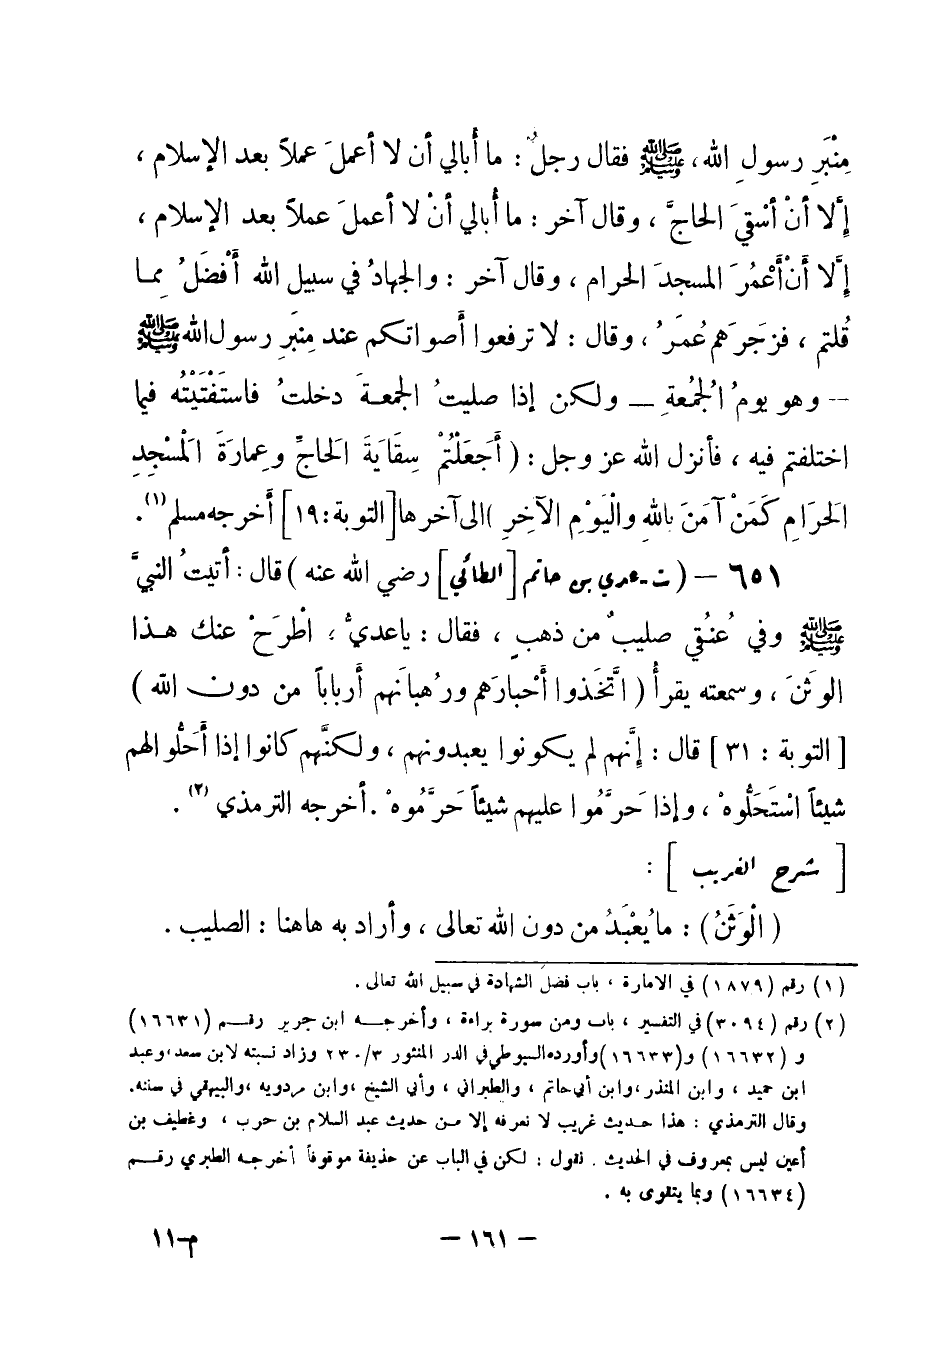 مِنْبَرِ رسولِ الله، ﷺ فقال رجلٌ : ما أُبالي أن لا أعملَ عملاً بعد الإسلام ،
إلَّا أنْ أسْقيَ الحاجَّ ، وقال آخر : ما أُبالي أنْ لا أعملَ عملاً بعد الإسلام ،
إلَّا أنْ أَعْمُرَ المسجدَ الحرام ، وقال آخر : والجهادُ في سبيل الله أَفْضَلُ مِمـا
قُلتم ، فزجَرَهم عُمَرُ ، وقال : لا ترفعوا أصواتكم عند مِنبَرِ رسول الله ﷺ
– وهو يومُ الْجُمُعةِ – ولكن إذا صليتُ الجمعـةَ دخلتُ فاستَفْتَيْتُه فيما
اختلفتم فيه ، فأنزل الله عز وجل : ( أَجَعَلْتُمْ سِقَايَةَ الحَاجِّ وعِمارَةَ المَسْجِدِ
الحَرَامِ كَمَنْ آمَنَ باللهِ والْيَوْمِ الآخِرِ ) الى آخرها [التوبة: ١٩] أخرجه مسلم (١).
٦٥١ – ( ت - عدي بن حاتم [الطائي] رضي الله عنه ) قال : أتيتُ النبيَّ
ﷺ وفي عُنُقي صليبٌ من ذهبٍ ، فقال : يا عديُّ ، اطْرَحْ عنك هـذا
الوثنَ ، وسمعته يقرأُ ( اتَّخَذوا أَحْبارَهم ورُهبانَهم أرباباً من دون الله )
[ التوبة : ٣١ ] قال : إنَّهم لم يكونوا يعبدونهم ، ولكنَّهم كانوا إذا أَحَلُّوا لهم
شيئاً اسْتَحَلُّوهْ ، وإذا حَرَّمُوا عليهم شيئاً حَرَّمُوهْ . أخرجه الترمذي (٢) .
[ شرح الغريب ] :
( الْوَثَنُ ) : ما يُعْبَدُ من دون الله تعالى ، وأراد به هاهنا : الصليب .
(١) رقم (١٨٧٩) في الامارة ، باب فضل الشهادة في سبيل الله تعالى .
(٢) رقم (٣٠٩٤) في التفسير ، باب ومن سورة براءة ، وأخرجـه ابن جرير رقـم (١٦٦٣١)
و (١٦٦٣٢) و(١٦٦٣٣) وأورده السيوطي في الدر المنثور ٢٣٠/٣ وزاد نسبته لابن سعد، وعبد
ابن حميد ، وابن المنذر ،وابن أبي حاتم ، والطبراني ، وأبي الشيخ ،وابن مردويه ،والبيهقي في سننه.
وقال الترمذي : هذا حـديث غريب لا نعرفه إلا مـن حديث عبد السلام بن حرب ، وغطيف بن
أعين ليس بمعروف في الحديث . نقول : لكن في الباب عن حذيفة موقوفاً أخرجـه الطبري رقـم
(١٦٦٣٤) وبما يتقوى به .
– ١٦١ –
م–١١